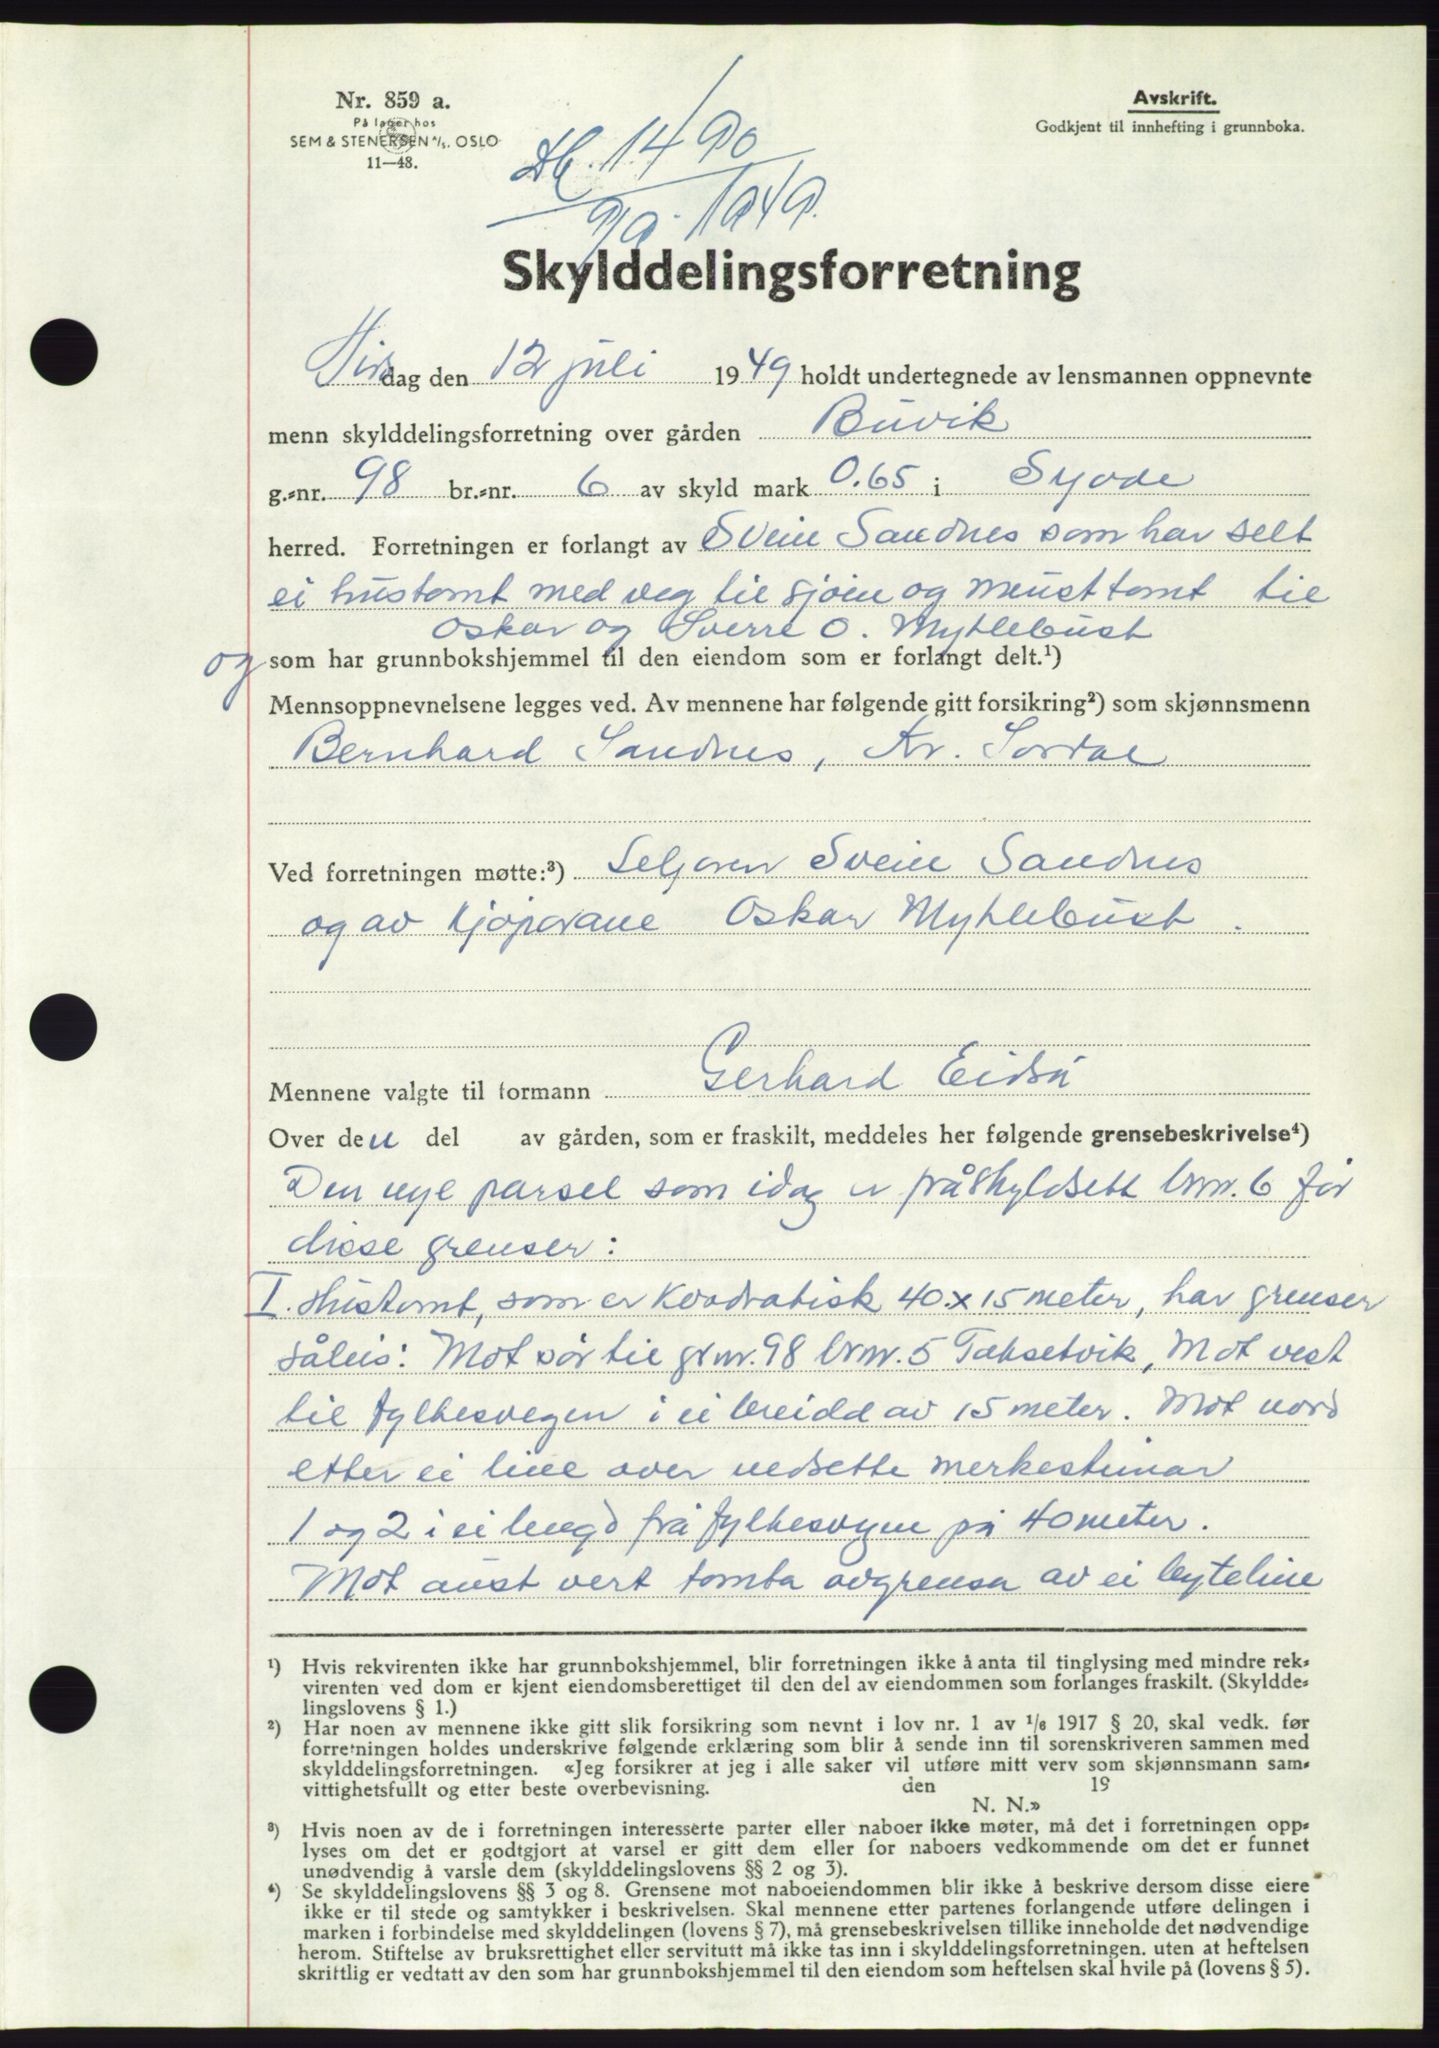 Nr. 859 a.
På lager hos
SEM & STENERSEN A/S. OSLO
11—48.
Avskrift.
Godkjent til innhefting i grunnboka.
Db. 1490
1949.
Skylddelingsforretning
Tirsdag den 12 juli 1949 holdt undertegnede av lensmannen oppnevnte
menn skylddelingsforretning over gården Buvik
g.-nr. 98 br.-nr. 6 av skyld mark 0.65 i Syvde
herred. Forretningen er forlangt av Svein Sandnes som har selt
ei hustomt med veg til sjøen og nausttomt til
Oskar og Sverre O. Myklebust
og som har grunnbokshjemmel til den eiendom som er forlangt delt.¹)
Mennsoppnevnelsene legges ved. Av mennene har følgende gitt forsikring²) som skjønnsmenn
Bernhard Sandnes, Kr. Sørdal
Ved forretningen møtte:³) Seljaren Svein Sandnes
og av kjøparane Oskar Myklebust.
Mennene valgte til formann Gerhard Eidså
Over den del av gården, som er fraskilt, meddeles her følgende grensebeskrivelse⁴)
Den nye parsel som idag er fråskyldsett brnr. 6 får
disse grenser:
I. Hustomt, som er kvadratisk 40 x 15 meter, har grenser
såleis: Mot sør til grnr. 98 brnr. 5 Taksetvik, Mot vest
til fylkesvegen i ei breidd av 15 meter. Mot nord
etter ei line over nedsette merkesteinar
1 og 2 i ei lengd frå fylkesvegen på 40 meter.
Mot aust vert tomta avgrensa av ei byteline
¹) Hvis rekvirenten ikke har grunnbokshjemmel, blir forretningen ikke å anta til tinglysing med mindre rek-
virenten ved dom er kjent eiendomsberettiget til den del av eiendommen som forlanges fraskilt. (Skyldde-
lingslovens § 1.)
²) Har noen av mennene ikke gitt slik forsikring som nevnt i lov nr. 1 av 1/6 1917 § 20, skal vedk. før
forretningen holdes underskrive følgende erklæring som blir å sende inn til sorenskriveren sammen med
skylddelingsforretningen. «Jeg forsikrer at jeg i alle saker vil utføre mitt verv som skjønnsmann sam-
vittighetsfullt og etter beste overbevisning. den 19
N. N.»
³) Hvis noen av de i forretningen interesserte parter eller naboer ikke møter, må det i forretningen opp-
lyses om det er godtgjort at varsel er gitt dem eller for naboers vedkommende om det er funnet
unødvendig å varsle dem (skylddelingslovens §§ 2 og 3).
⁴) Se skylddelingslovens §§ 3 og 8. Grensene mot naboeiendommen blir ikke å beskrive dersom disse eiere
ikke er til stede og samtykker i beskrivelsen. Skal mennene etter partenes forlangende utføre delingen i
marken i forbindelse med skylddelingen (lovens § 7), må grensebeskrivelsen tillike inneholde det nødvendige
herom. Stiftelse av bruksrettighet eller servitutt må ikke tas inn i skylddelingsforretningen. uten at heftelsen
skriftlig er vedtatt av den som har grunnbokshjemmel til den eiendom som heftelsen skal hvile på (lovens § 5).